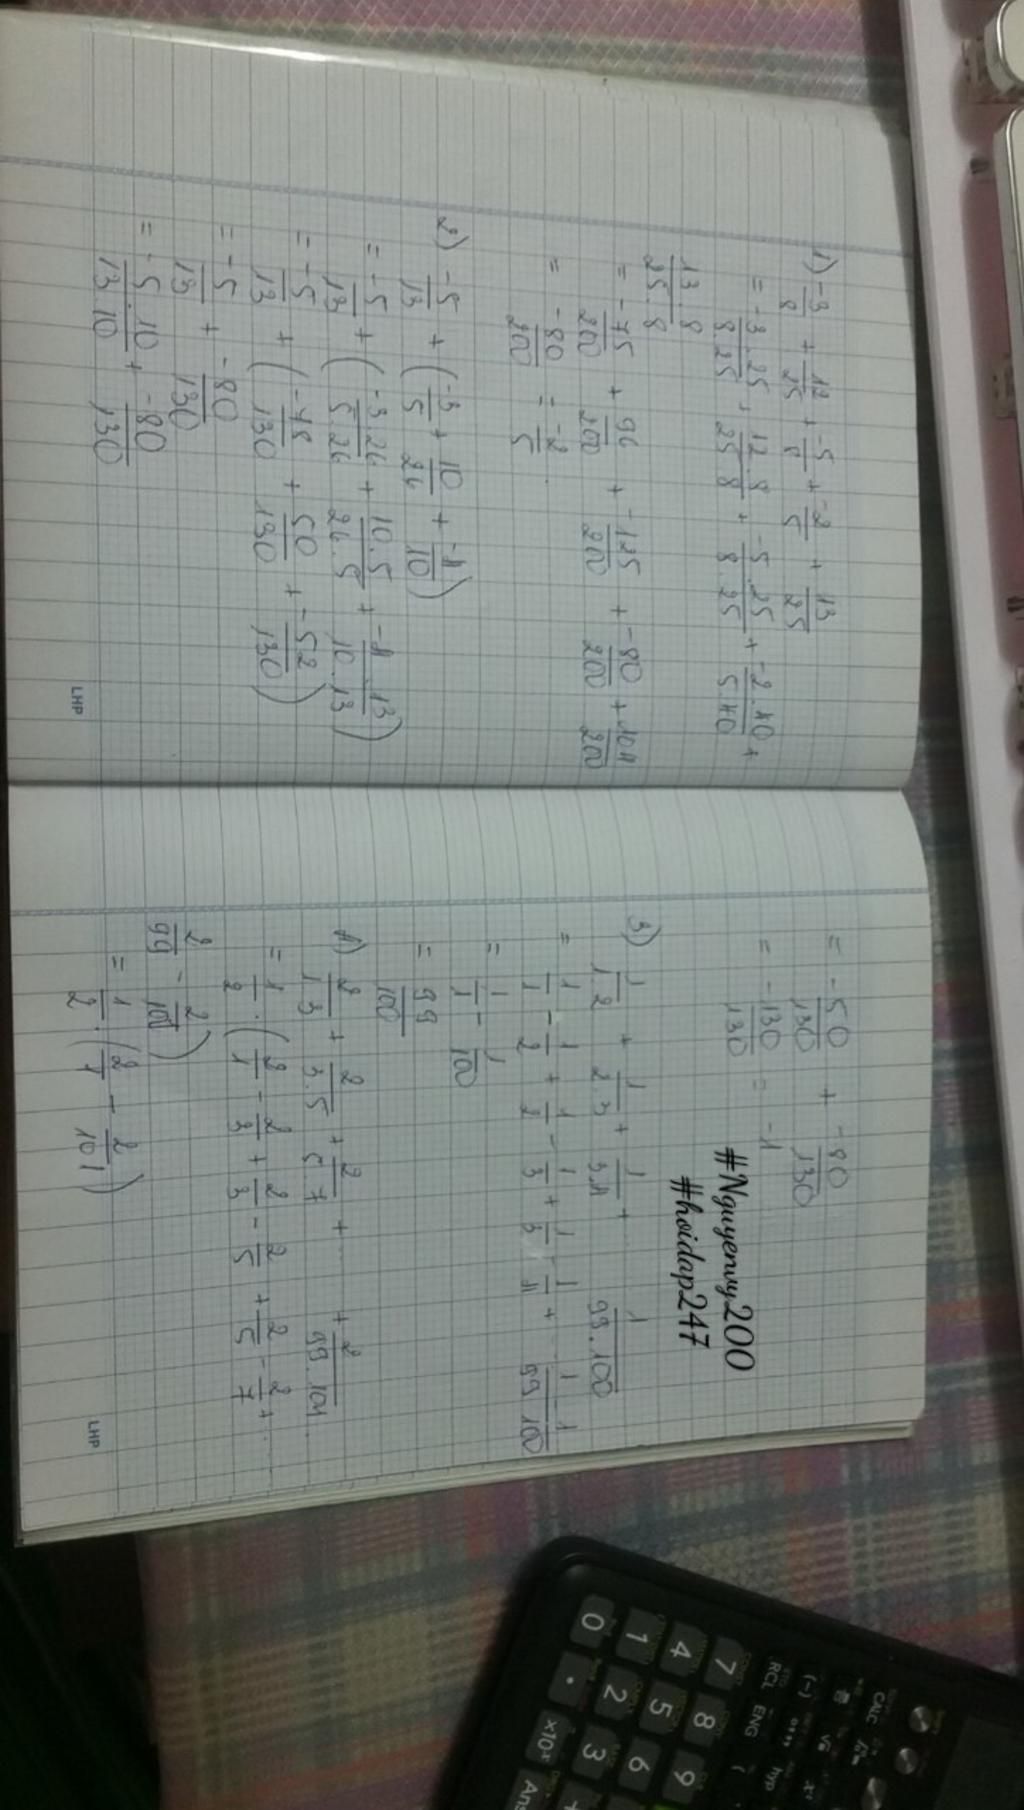 1) -3/8 + 12/25 + -5/8 + -2/5 + 13/25
= -3.25/8.25 + 12.8/25.8 + -5.25/8.25 + -2.40/5.40 +
13.8/25.8
= -75/200 + 96/200 + -125/200 + -80/200 + 104/200
= -80/200 = -2/5
2) -5/13 + (-3/5 + 10/26 + -4/10)
= -5/13 + (-3.26/5.26 + 10.5/26.5 + -4.13/10.13)
= -5/13 + (-78/130 + 50/130 + -52/130)
= -5/13 + -80/130
= -5.10/13.10 + -80/130
LHP
= -50/130 + -80/130
= -130/130 = -1
#Nguyenvy200
#hoidap247
3) 1/1.2 + 1/2.3 + 1/3.4 + 1/99.100
= 1/1 - 1/2 + 1/2 - 1/3 + 1/3 - 1/4 + ... 1/99 1/100
= 1/1 - 1/100
= 99/100
4) 2/1.3 + 2/3.5 + 2/5.7 + ... + 2/99.101
= 1/2 . (2/1 - 2/3 + 2/3 - 2/5 + 2/5 - 2/7 + ...
2/99 - 2/101)
= 1/2 . (2/1 - 2/101)
LHP
CALC
(-)
hyp
RCL ENG (
7 8 9
4 5 6
1 2 3 +
0 . ×10ˣ Ans